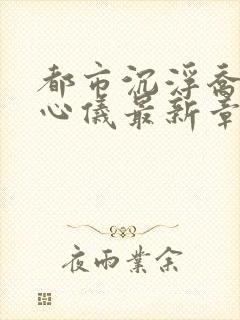 都市沉浮乔
心儀最新章
夜雨業余